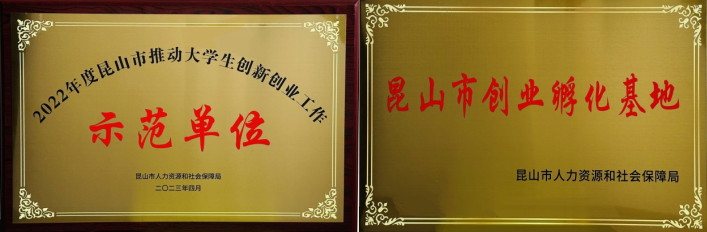 2022年度昆山市推动大学生创新创业工作
示范单位
昆山市人力资源和社会保障局
二〇二三年四月
昆山市创业孵化基地
昆山市人力资源和社会保障局